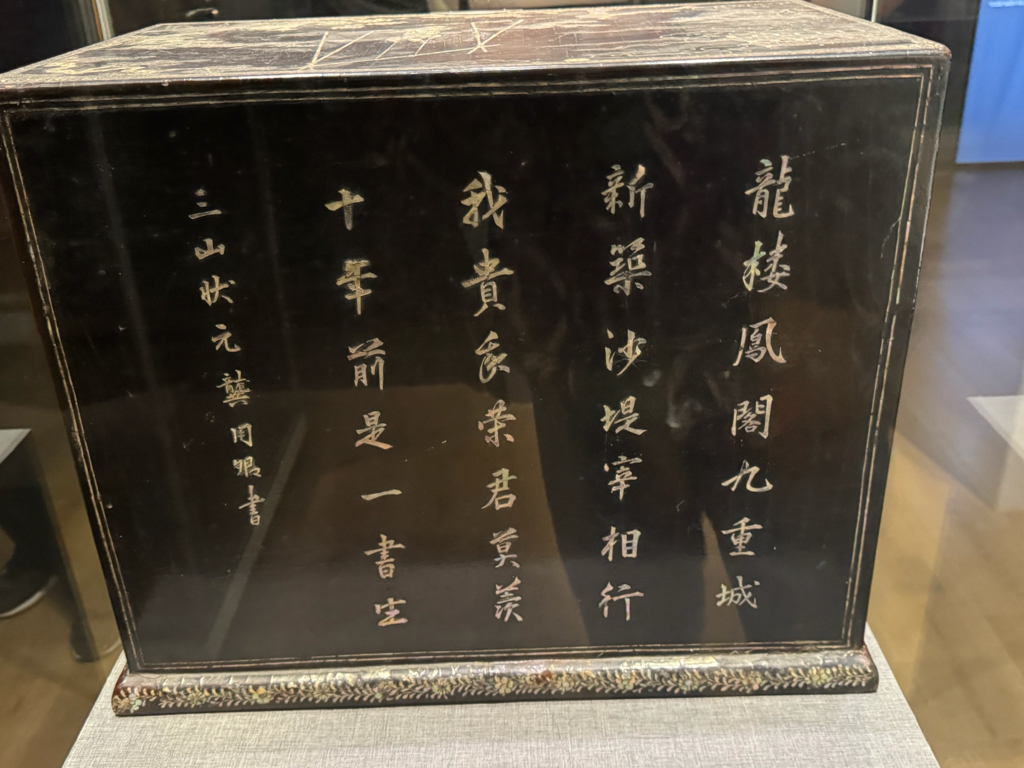 龍楼鳳閣九重城
新築沙堤宰相行
我貴我荣君莫羡
十年前是一書生
三山状元龔用卿書